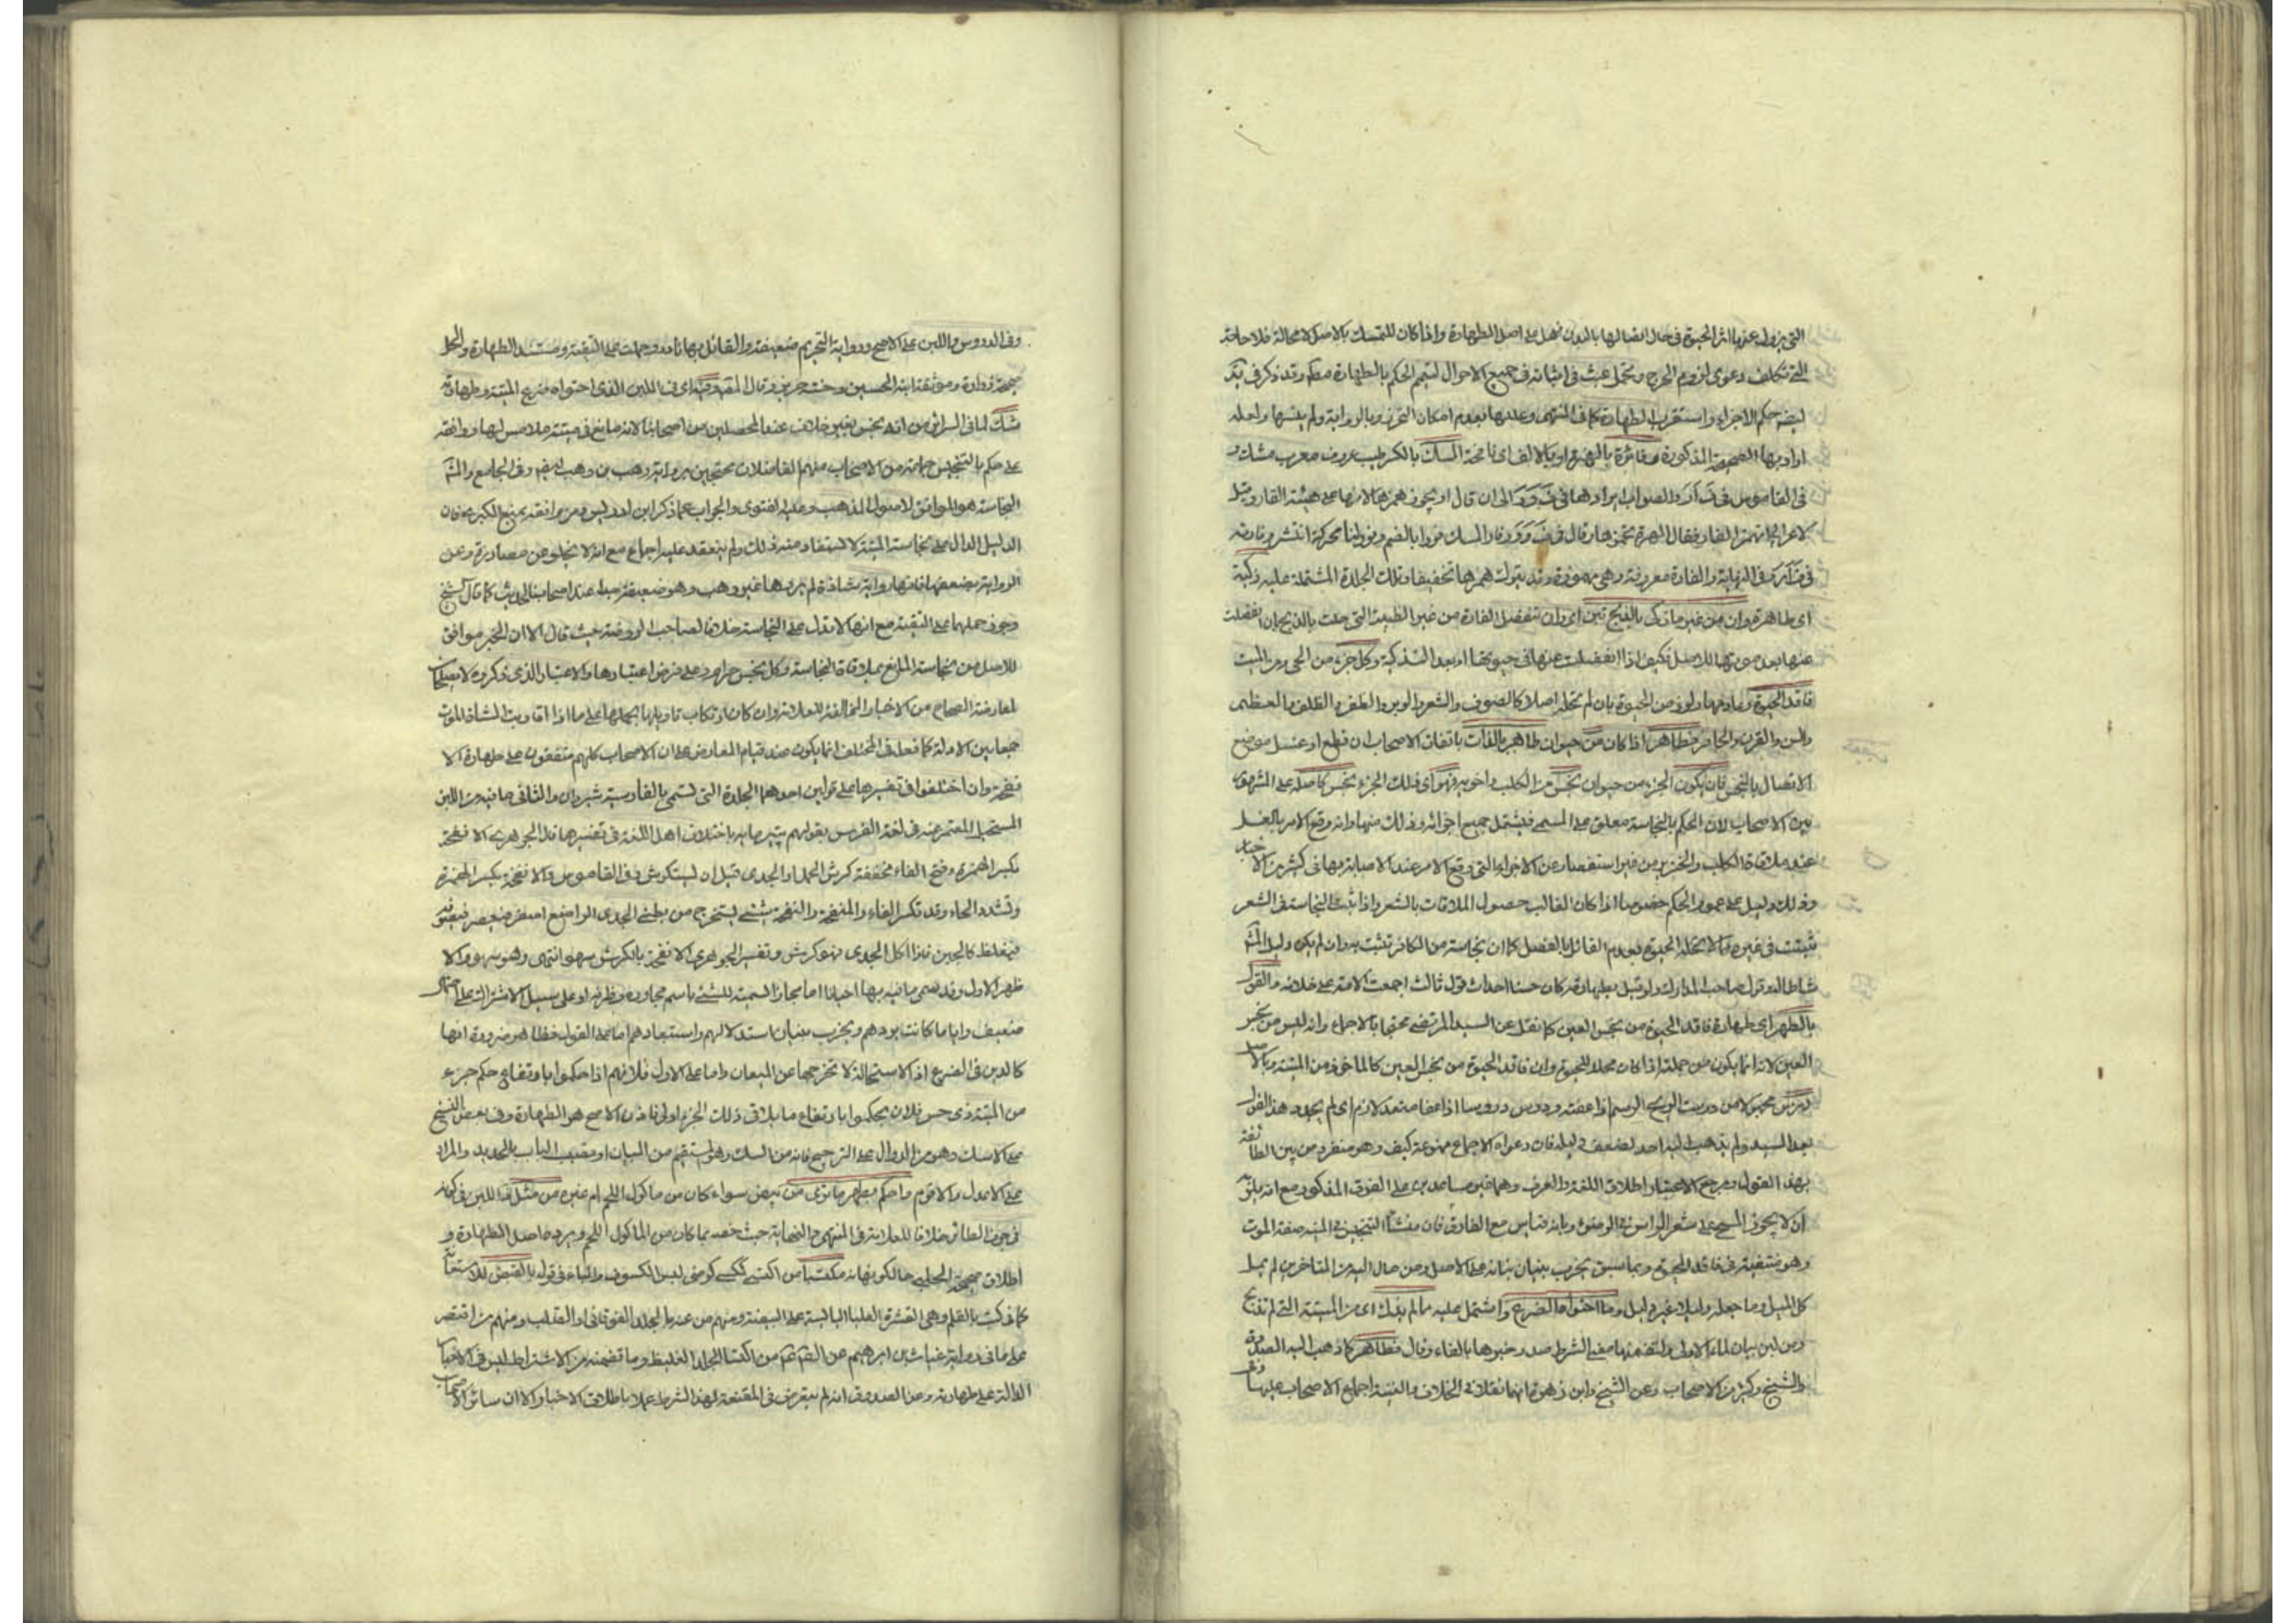 التي يزول عنها اثر الحيوة في حال اتصالها بالبدن فهل على اصل الطهارة واذا كان للتمسك بالاصل لا محالة فلا حاجة
الى تكلف دعوى لزوم الحرج وتحمل عبث في اثباته في جميع الاحوال ليتم الحكم بالطهارة مطلقا وقد ذكر في
حكم الاجزاء واستقرب الطهارة كما في المنتهى وعللها بعدم امكان التحرز وبالرواية ولم يفسرها ولعله
اراد بها الصحيحة المذكورة وفائرة بالهمزة او بالالف اى نافجة المسك بالكسر طيب معروف معرب مشك و
في القاموس في ف أ ر والصواب ايرادها في ف و ر الى ان قال او يجوز همزها لانها على هيئة الفار وقيل
لاعرابى اتهمز الفار فقال الهرة تهمزها وقال في ف و ر وفار المسك فورا بالضم وفورانا محركة انتشر وفارته
في ف أ ر وفي النهاية والفارة معروفة وهي مهموزة وقد يترك همزها تخفيفا وتلك الجلدة المشتملة عليه ذكية
اى طاهرة وان من غير ما ذكى بالذبح تبن اى وان تنفصل الفارة من غير الظبية التي حلت بالذبح بان انفصلت
عنها بعد موتها للاصل فكيف اذا انفصلت عنها في حيوتها او بعد التذكية وكل جزء من الحى ومن الميت
فاقد الحيوة وعادمها ولو من الحيوة بان لم تحله اصلا كالصوف والشعر والوبر والظفر والظلف والعظم
والسن والقرن والحافر فطاهر اذا كان من حيوان طاهر بالذات باتفاق الاصحاب ان قطع او غسل موضع
الاتصال بالنجس فان يكون الجزء من حيوان نجس من الكلب واخويه فهو اى ذلك الجزء نجس كاصله على المشهور
بين الاصحاب لان الحكم بالنجاسة معلق على المسمى فيشمل جميع اجزائه وذلك منها وانه وقع الامر بالغسل
عند ملاقاة الكلب والخنزير من غير استفصار عن الاجزاء التي وقع الامر عند الاصابة بها في كثير من الاخبار
وذلك دليل على عموم الحكم خصوصا اذا كان الغالب حصول الملاقات بالشعر واذا ثبت النجاسة في الشعر
ثبتت في غيره مما لا تحله الحيوة بعدم القائل بالفصل كما ان نجاسته من الكافر تثبت به وان لم يكن دليل
شاملا لعدل صاحب المدارك ولو قيل بطهارته كان حسنا احداث قول ثالث اجمعت الامة على خلافه والقول
بالطهر اى طهارة فاقد الحيوة من نجس العين كما نقل عن السيد المرتضى محتجا بالاجماع وانه ليس من نجس
العين لانه انما يكون من جملته اذا كان محلا للحيوة وان فاقد الحيوة من نجس العين كالماخوذ من الميتة وبالاصل
درس مجهولا من درست الريح الرسم اذا عفته ودرس دروسا اذا عفا متعد لازم اى لم يجدد هذا القول
بعد السيد ولم يذهب اليه احد لضعف دليله فان دعواه الاجماع ممنوعة كيف وهو منفرد من بين الطائفة
بهذا القول ومرجع الاعتبار اطلاق اللغة والعرف وهما غير مساعدين على الفرق المذكور مع انه يلزمه
ان لا يجوز المسح على شعر الراس في الوضوء وبانه قياس مع الفارق فان منشأ التنجيس في الميتة صفة الموت
وهو منتفية في فاقد الحيوة وبما سبق يخرب بنيان بنائه على الاصل ومن مال اليه من المتاخرين لم يمل
كل الميل وما جعله دليلا بغير دليل وما احتواها الضرع واشتمل عليه ما لم يذك اى من الميتة التي لم تذبح
ومن لبن بيان لماء الاولى ولتضمنها معنى الشرط صدر خبرها بالفاء وقال فطاهر كما ذهب اليه الصدوق
والشيخ وكثير من الاصحاب وعن الشيخ وابن زهرة انهما نقلا في الخلاف والغنية اجماع الاصحاب عليه
وفي الدروس واللبن على الاصح ورواية التحريم ضعيفة والقائل بها نادر وحملت على التقية ومستند الطهارة والحل
صحيحة زرارة وموثقة ابنه الحسين وحسنة حريز وقال المصنف وفيه اى في اللبن الذى احتواه ضرع الميتة وطهارته
شك لما في السرائر من انه نجس بغير خلاف عند المحصلين من اصحابنا لانه مايع في ميتة ملامس لها ووافقه
على حكم بالتنجيس جماعة من الاصحاب منهم الفاضلان محتجين برواية وهب بن وهب ايضا وفي الجامع
النجاسة هو الموافق لاصول المذهب وعليه الفتوى والجواب عما ذكر ابن ادريس ومن وافقه بمنع الكبرى فان
الدليل الدال على نجاسة الميتة لا يستفاد منه ذلك ولم ينعقد عليه اجماع مع انه لا يخلو من مصادرة وعن
الرواية بضعفها فانها رواية شاذة لم يروها غير وهب وهو ضعيف جدا عند اصحاب الحديث كما قال الشيخ
وجوز حملها على التقية مع انها لا تدل على النجاسة خلافا لصاحب الروضة حيث قال الا ان الخبر موافق
للاصل من نجاسة المايع بملاقاة النجاسة وكل نجس حرام وعلى فرض اعتبارها والاعتبار الذى ذكروه لا يصلحان
لمعارضة الصحاح من الاخبار المخالفة للعلامة وان كان ارتكاب تاويلها بحملها على ما اذا قاربت الشاة الموت
جمعا بين الادلة كما فعله في المختلف انما يكون عند قيام المعارض على ان الاصحاب كلهم متفقون على طهارة الا
نفحة وان اختلفوا في تفسيرها على قولين احدهما الجلدة التي تسمى بالفارسية شيردان والثاني ما فيه من اللبن
المستحيل المعتبر عنه في لغة الفرس بقولهم پنيرمايه باختلاف اهل اللغة في تفسيرها قال الجوهرى الانفحة
بكسر الهمزة وفتح الفاء مخففة كرش الحمل او الجدى قبل ان يستكرش وفي القاموس والانفحة بكسر الهمزة
وتشدد الحاء وقد تكسر الفاء والمنفحة والنفحة شئ يستخرج من بطن الجدى الراضع اصفر فيعصر في صوفة
فيغلظ كالجبن فاذا اكل الجدى فهو كرش وتفسير الجوهرى الانفحة بالكرش سهو انتهى وهو سهو والا
ظهر الاول وقد سمى ما فيه بها احيانا اما مجازا لتسمية للشئ باسم مجاوره وظرفه او على سبيل الاشتراك على احتمال
ضعيف وايا ما كانت يردهم ويخرب بنيان استدلالهم واستبعادهم اما على القول فظاهر ضرورة انها
كاللبن في الضرع اذ الاستحالة لا تخرجها عن الميعان واما على الاول فلانهم اذا حكموا بارتفاع حكم جزء
من الميتة ذى حس فلان يحكموا بارتفاع ما يلاقى ذلك الجزء اولى فاذن الاصح هو الطهارة وفي بعض النسخ
على الاسد وهو من الدوال على الترجيح فانه من السداد وهو المستقيم من البيان او مضيف الباب بالجديد والمراد
على الاعدل والاقوم واحكم بطهر ما ترى من بيض سواء كان من ماكول اللحم ام غيره من مثل ذا اللبن في كونه
في جوف الطائر خلافا للعلامة في المنتهى والنهاية حيث خصه بما كان من الماكول اللحم ويرده اصل الطهارة و
اطلاق صحيحة الحلبى حالكونها مكتسيا من اكتسى ككسى كرضى لبس الكسوة والباء في قوله بالقيض للاستعانة
كما في كتبت بالقلم وهي القشرة العليا اليابسة على البيضة ومنهم من عبر بالجلد الفوقانى او الصلب ومنهم من اقتصر
على ما في رواية غياث بن ابرهيم عن الصادق من اكتساء الجلد الغليظ وما تضمنه من الاشتراط ليس في الاخبار
الدالة على طهارته وعن الصدوق انه لم يتعرض في المقنعة لهذا الشرط عملا باطلاق الاخبار الا ان سائر الاصحاب